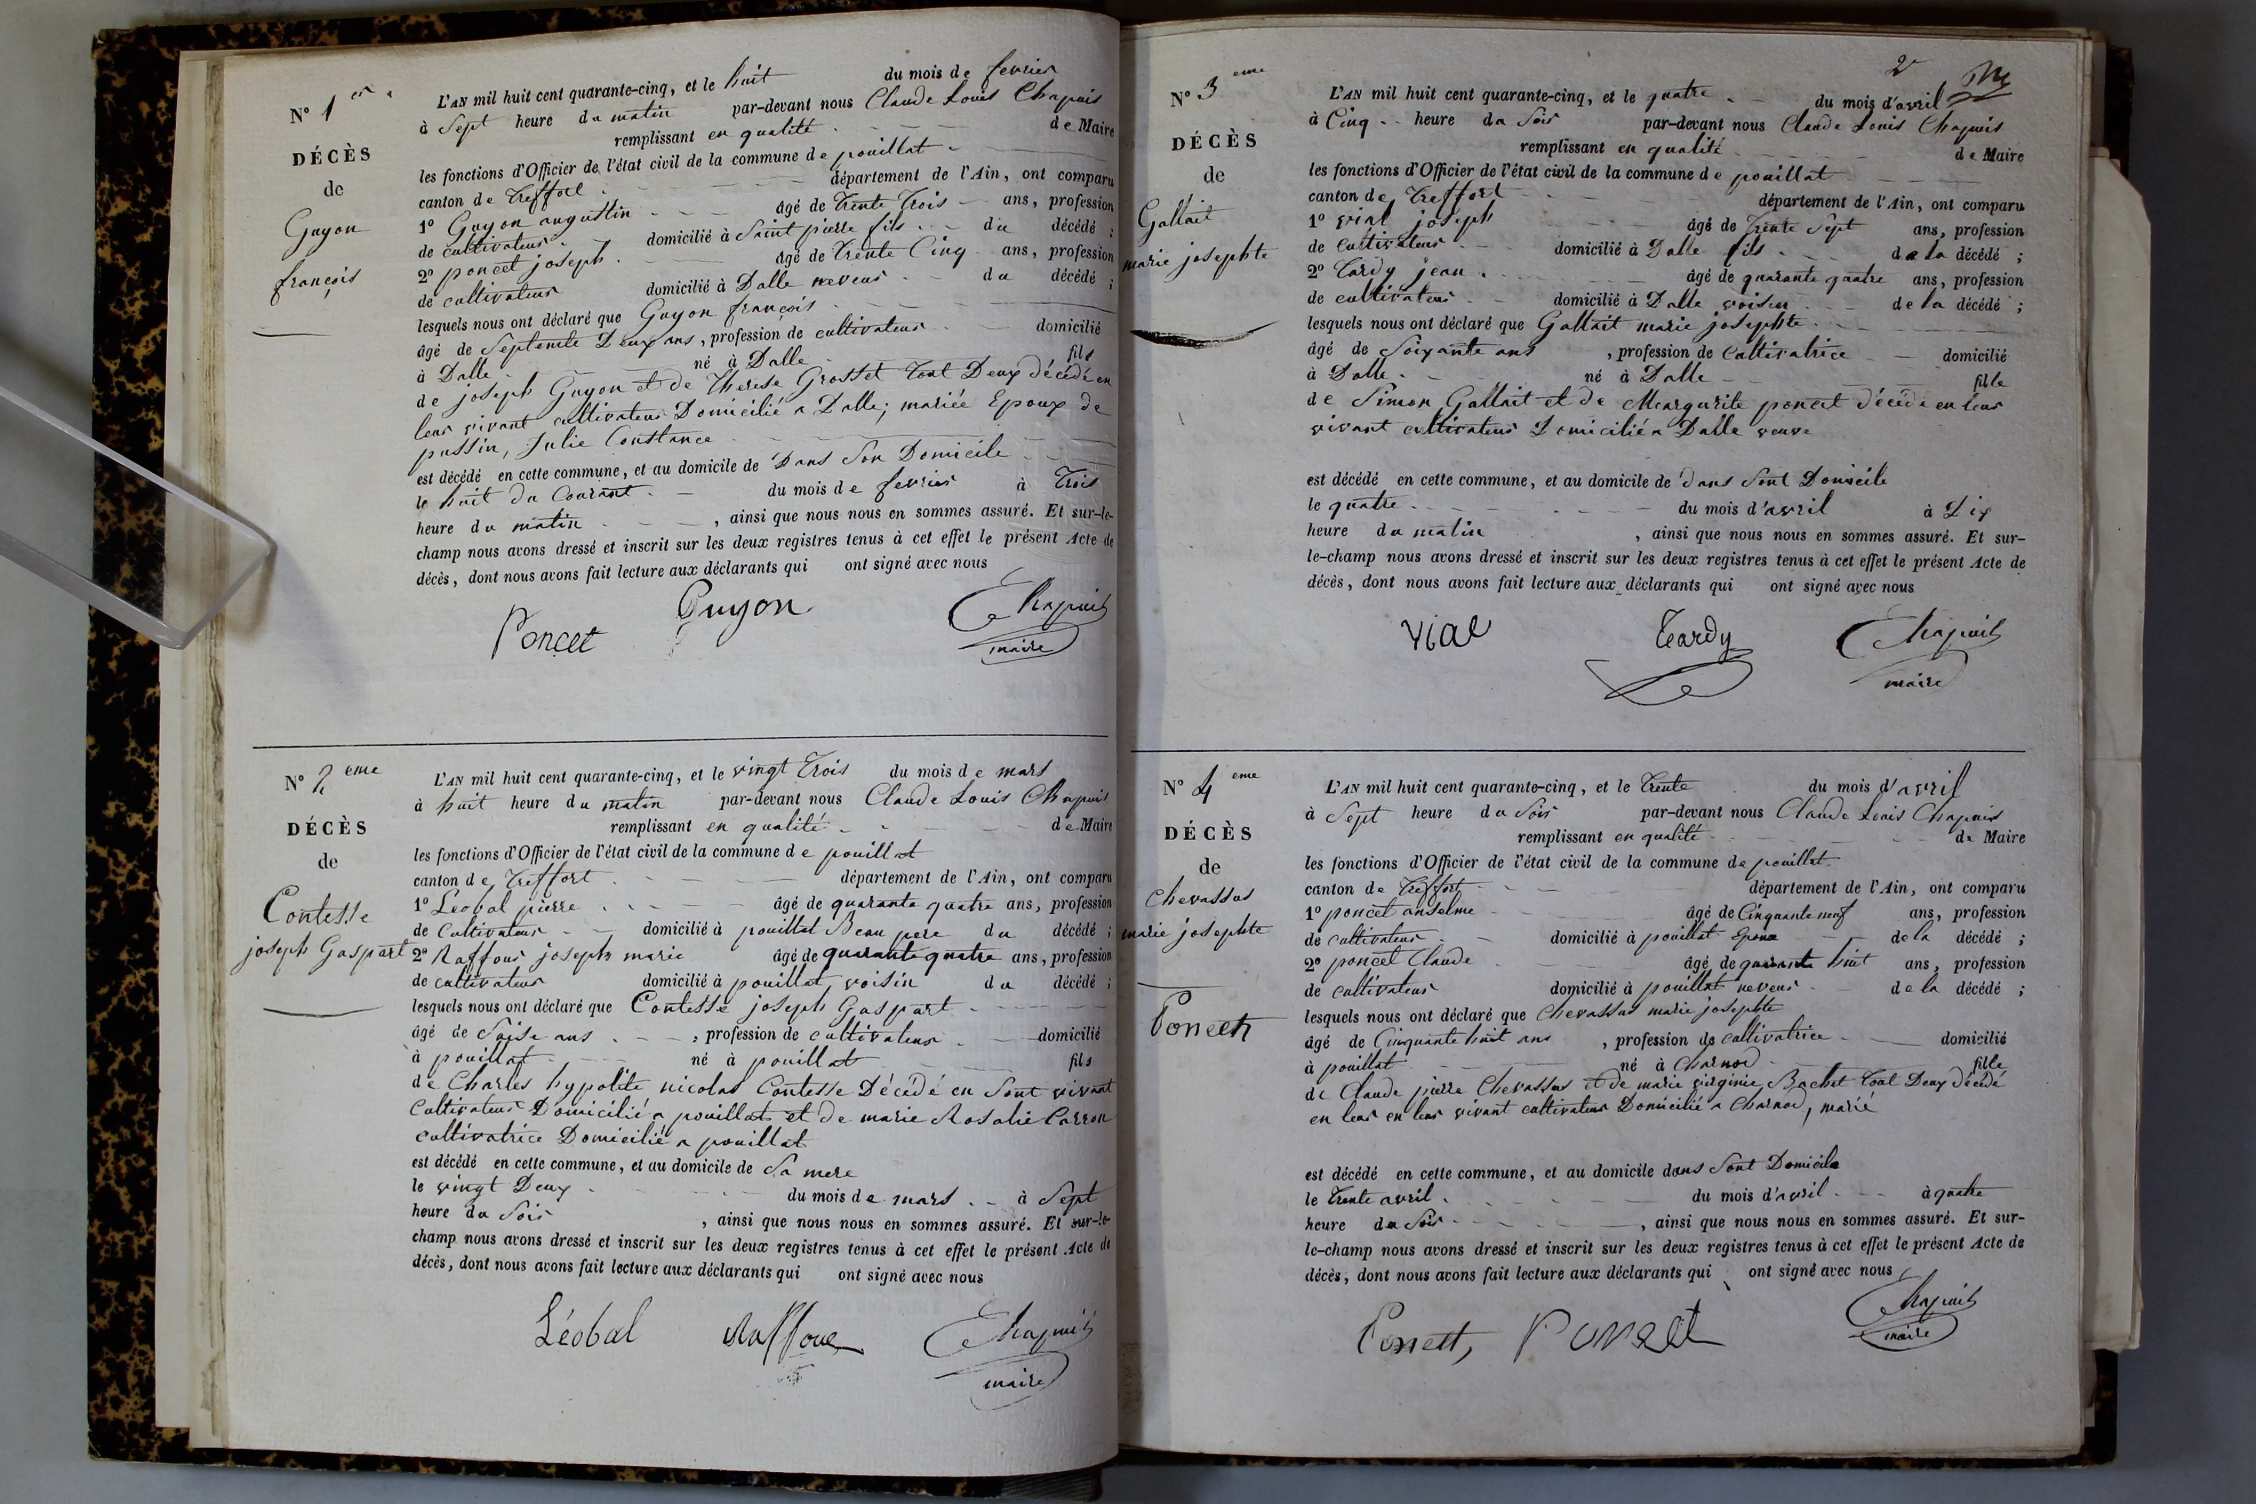 N° 1er
DÉCÈS
de
Guyon
françois
L'AN mil huit cent quarante-cinq, et le huit du mois de fevrier
à Sept heure du matin par-devant nous Claude Louis Chapuis
remplissant en qualité de Maire
les fonctions d'Officier de l'état civil de la commune de pouillat
canton de Treffort département de l'Ain, ont comparu
1° Guyon augustin âgé de Trente Trois ans, profession
de cultivateur domicilié à Saint pierre fils du décédé ;
2° poncet joseph âgé de Trente Cinq ans, profession
de cultivateur domicilié à Dalle neveu du décédé ;
lesquels nous ont déclaré que Guyon françois
âgé de Septente Deux ans, profession de cultivateur domicilié
à Dalle né à Dalle fils
de joseph Guyon et de Therese Grosset tout Deux décédé en
leur vivant cultivateur Domicilié a Dalle; mariée Epoux de
pussin, Julie Constance
est décédé en cette commune, et au domicile de Dans Son Domicile
le huit du Courant du mois de fevrier à Trois
heure du matin, ainsi que nous nous en sommes assuré. Et sur-le-
champ nous avons dressé et inscrit sur les deux registres tenus à cet effet le présent Acte de
décès, dont nous avons fait lecture aux déclarants qui ont signé avec nous
Poncet Guyon Chapuis
maire
N° 2eme
DÉCÈS
de
Contesse
joseph Gaspart
L'AN mil huit cent quarante-cinq, et le vingt Trois du mois de mars
à huit heure du matin par-devant nous Claude Louis Chapuis
remplissant en qualité de Maire
les fonctions d'Officier de l'état civil de la commune de pouillat
canton de Treffort département de l'Ain, ont comparu
1° Léobal pierre âgé de quarante quatre ans, profession
de Cultivateur domicilié à pouillat Beau pere du décédé ;
2° Raffour joseph marie âgé de quarante quatre ans, profession
de cultivateur domicilié à pouillat voisin du décédé ;
lesquels nous ont déclaré que Contesse joseph Gaspart
âgé de Saise ans, profession de cultivateur domicilié
à pouillat né à pouillat fils
de Charles hypolite nicolas Contesse Décédé en Sont vivant
Cultivateur Domicilié a pouillat et de marie Rosalie Carron
cultivatrice Domicilié a pouillat
est décédé en cette commune, et au domicile de Sa mere
le vingt Deux du mois de mars à Sept
heure du Soir, ainsi que nous nous en sommes assuré. Et sur-le-
champ nous avons dressé et inscrit sur les deux registres tenus à cet effet le présent Acte de
décès, dont nous avons fait lecture aux déclarants qui ont signé avec nous
Léobal Raffour Chapuis
maire
2
N° 3eme
DÉCÈS
de
Gallait
marie josephte
L'AN mil huit cent quarante-cinq, et le quatre du mois d'avril
à Cinq heure du Soir par-devant nous Claude Louis Chapuis
remplissant en qualité de Maire
les fonctions d'Officier de l'état civil de la commune de pouillat
canton de Treffort département de l'Ain, ont comparu
1° vial joseph âgé de Trente Sept ans, profession
de Cultivateur domicilié à Dalle fils de la décédé ;
2° Tardy jean âgé de quarante quatre ans, profession
de cultivateur domicilié à Dalle voisin de la décédé ;
lesquels nous ont déclaré que Gallait marie josephte
âgé de Soixante ans, profession de Cultivatrice domicilié
à Dalle né à Dalle fille
de Simon Gallait et de Margurite poncet décédé en leur
vivant cultivateur Domicilié a Dalle veuve
est décédé en cette commune, et au domicile de dans Sont Domicile
le quatre du mois d'avril à Dix
heure du matin, ainsi que nous nous en sommes assuré. Et sur-
le-champ nous avons dressé et inscrit sur les deux registres tenus à cet effet le présent Acte de
décès, dont nous avons fait lecture aux déclarants qui ont signé avec nous
vial Tardy Chapuis
maire
N° 4eme
DÉCÈS
de
Chevassus
marie josephte
Poncet
L'AN mil huit cent quarante-cinq, et le Trente du mois d'avril
à Sept heure du Soir par-devant nous Claude Louis Chapuis
remplissant en qualité de Maire
les fonctions d'Officier de l'état civil de la commune de pouillat
canton de Treffort département de l'Ain, ont comparu
1° poncet anselme âgé de Cinquante neuf ans, profession
de cultivateur domicilié à pouillat Epoux de la décédé ;
2° poncet Claude âgé de quarante huit ans, profession
de cultivateur domicilié à pouillat neveu de la décédé ;
lesquels nous ont déclaré que Chevassus marie josephte
âgé de Cinquante huit ans, profession de cultivatrice domicilié
à pouillat né à Charnod fille
de Claude pierre Chevassus et de marie virginie Bachet tout Deux décédé
en leur en leur vivant cultivateur Domicilié a Charnod, marié
est décédé en cette commune, et au domicile dans Sont Domicile
le Trente avril du mois d'avril à quatre
heure du Soir, ainsi que nous nous en sommes assuré. Et sur-
le-champ nous avons dressé et inscrit sur les deux registres tenus à cet effet le présent Acte de
décès, dont nous avons fait lecture aux déclarants qui ont signé avec nous
Poncet, Poncet Chapuis
maire